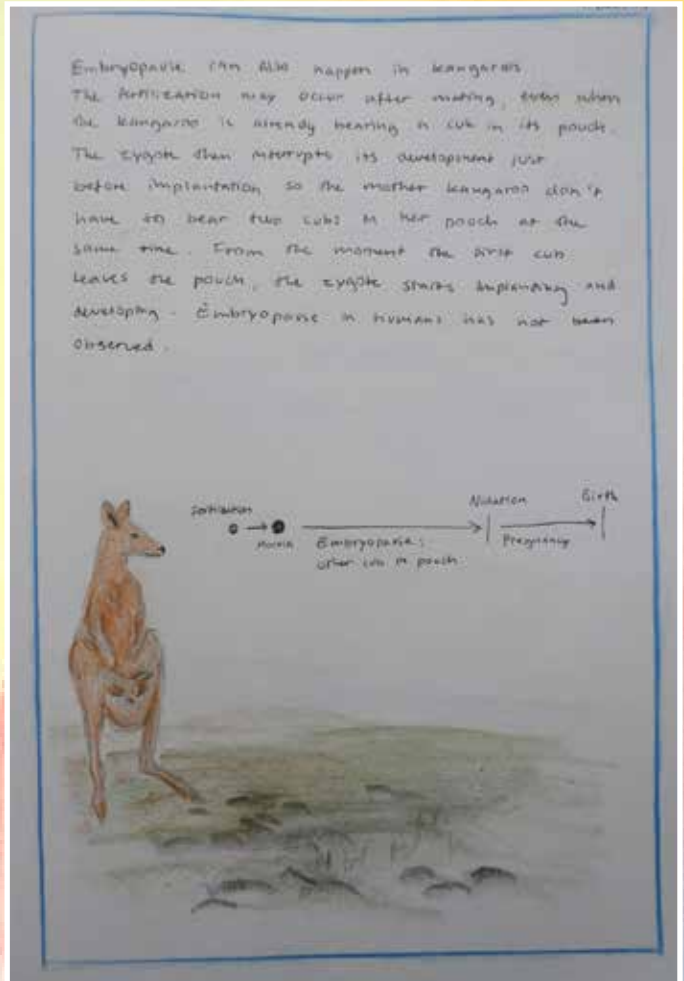 Embryopause can Also happen in kangaroos
The fertilization may occur after mating, even when
the kangaroo is already bearing a cub in its pouch.
The zygote then interrupts its development just
before implantation so the mother kangaroo don't
have to bear two cubs in her pouch at the
same time. From the moment the first cub
leaves the pouch, the zygote starts implanding and
developing. Embryopause in humans has not been
observed.
Fertilization
Nidation
Birth
Morula
Embryopause:
other cub in pouch
Pregnancy